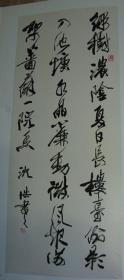 綠樹濃陰夏日長樓臺倒影
入池塘水晶簾動微風起滿
架薔薇一院香